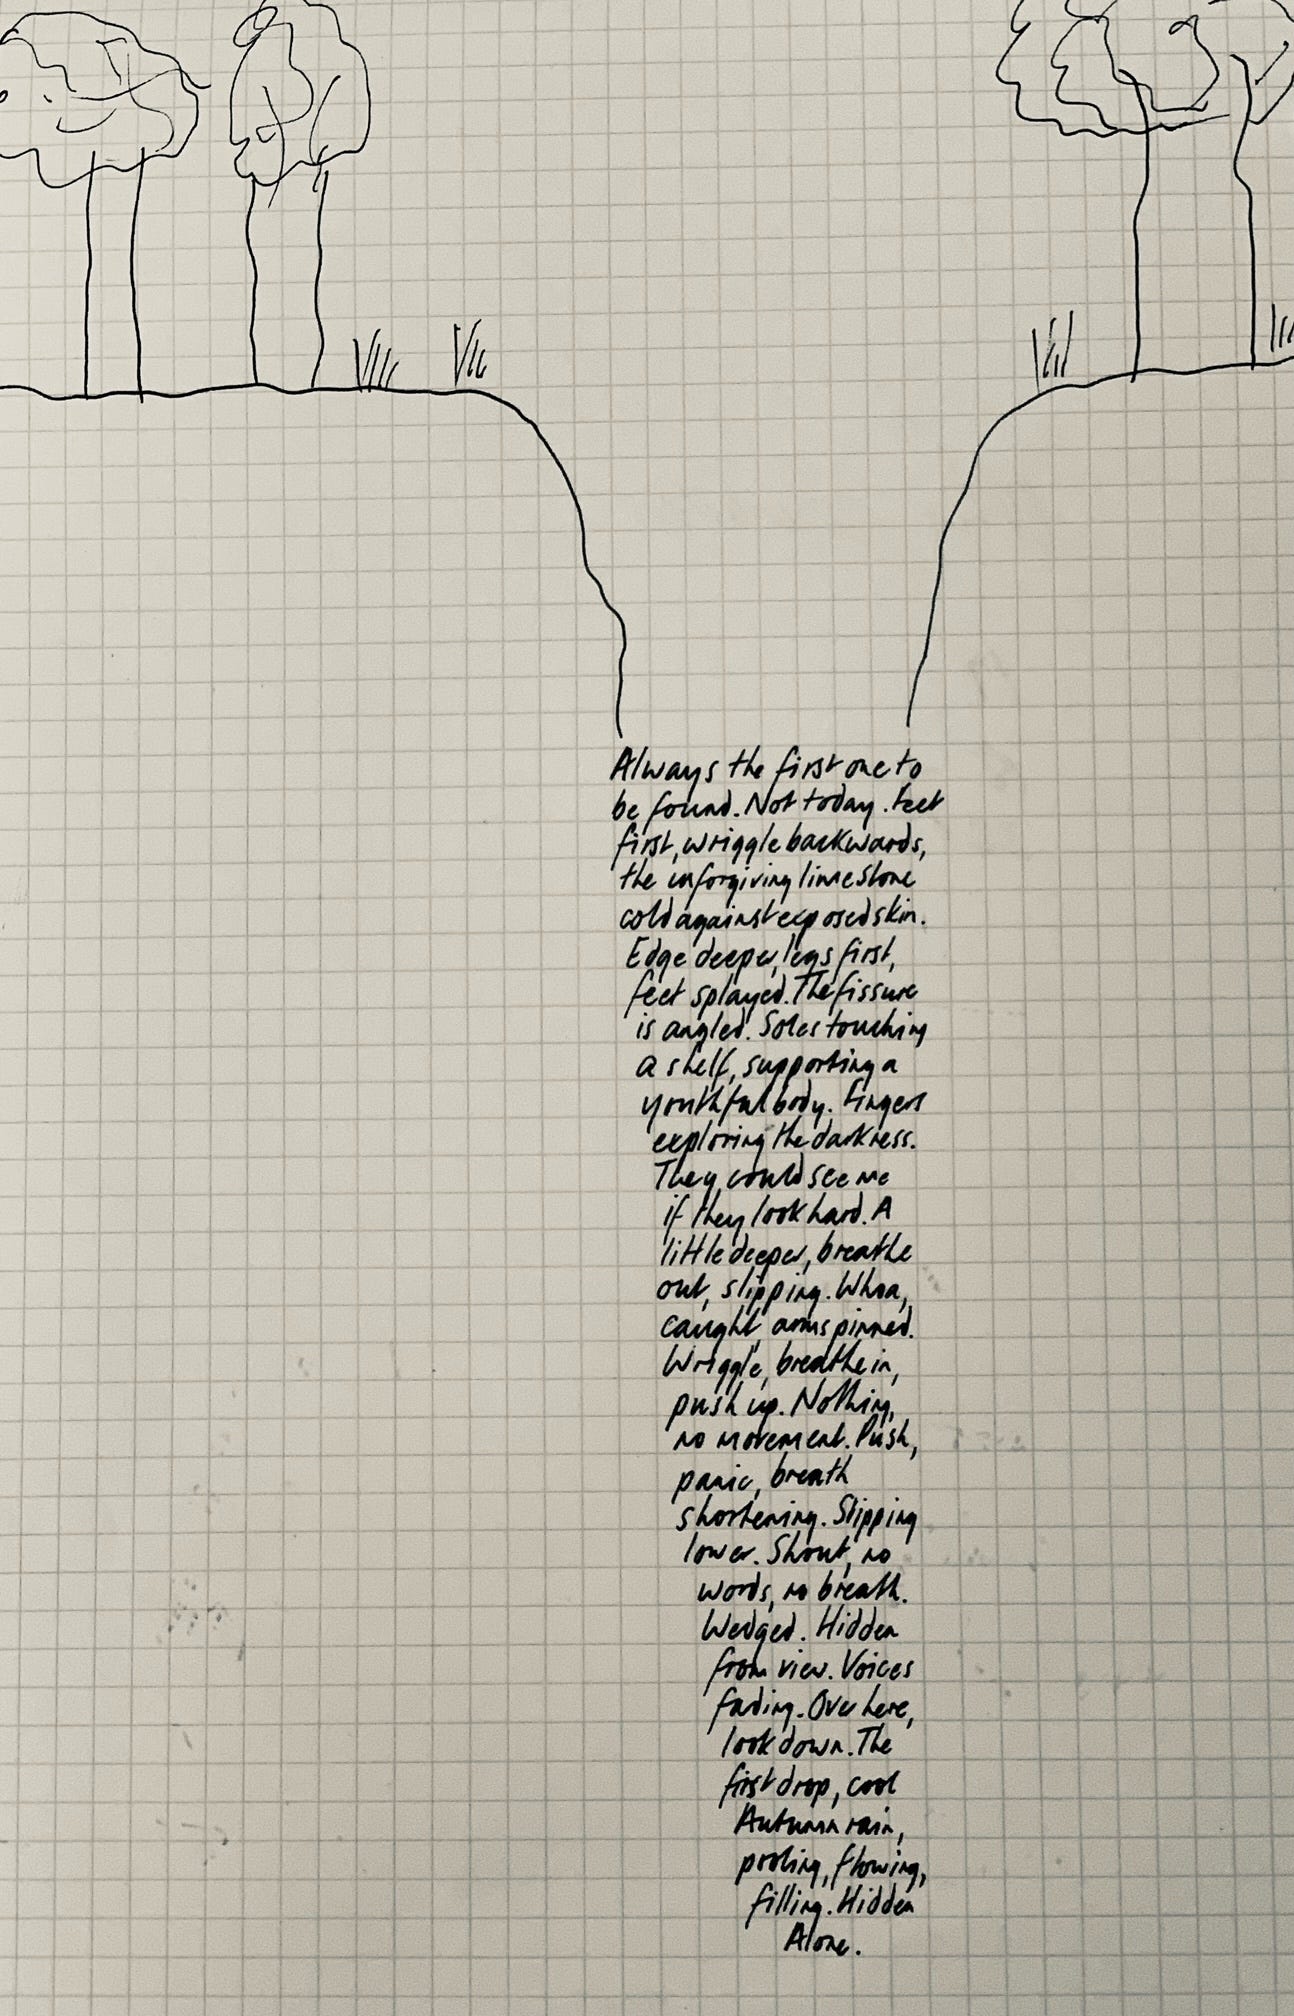 Always the first one to
be found. Not today. Feet
first, wriggle backwards,
the unforgiving limestone
cold against exposed skin.
Edge deeper, legs first,
feet splayed. The fissure
is angled. Soles touching
a shelf, supporting a
youthful body. Fingers
exploring the darkness.
They could see me
if they look hard. A
little deeper, breathe
out, slipping. Whoa,
caught, arms pinned.
Wriggle, breathe in,
push up. Nothing,
no movement. Push,
panic, breath
shortening. Slipping
lower. Shout, no
words, no breath.
Wedged. Hidden
from view. Voices
fading. Over here,
look down. The
first drop, cool
Autumn rain,
pooling, flowing,
filling. Hidden
Alone.